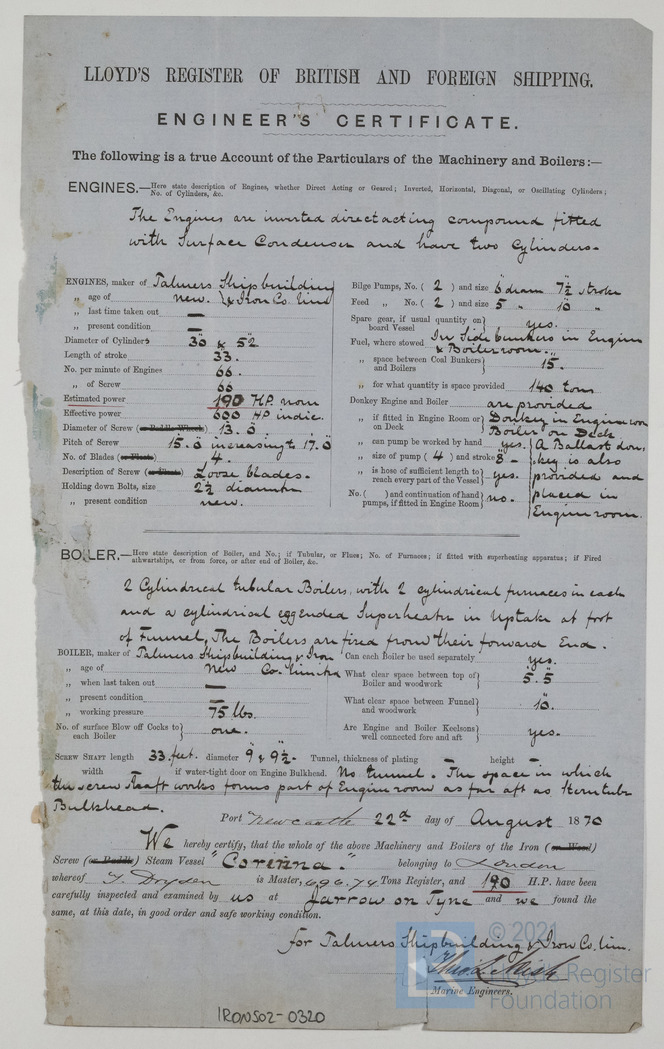 LLOYD'S REGISTER OF BRITISH AND FOREIGN SHIPPING.
ENGINEER'S CERTIFICATE.
The following is a true Account of the Particulars of the Machinery and Boilers:—
ENGINES.—Here state description of Engines, whether Direct Acting or Geared; Inverted, Horizontal, Diagonal, or Oscillating Cylinders;
No. of Cylinders, &c.
The Engines are inverted direct acting compound fitted
with Surface Condenser and have two Cylinders.
ENGINES, maker of Palmers Shipbuilding
„ age of new. & Iron Co. Limd
„ last time taken out —
„ present condition —
Diameter of Cylinders 30" & 52"
Length of stroke 33"
No. per minute of Engines 66.
„ of Screw 66
Estimated power 190 H.P. nom
Effective power 600 H.P. indic.
Diameter of Screw (or Paddle Wheels) 13.0"
Pitch of Screw 15.0" increasing to 17.0"
No. of Blades (or Floats) 4.
Description of Screw (or Floats) Loose blades.
Holding down Bolts, size 2½ diameter
„ present condition new.
Bilge Pumps, No. ( 2 ) and size 6" diam 7½" stroke
Feed „ No. ( 2 ) and size 5 " 10 "
Spare gear, if usual quantity on board Vessel yes.
Fuel, where stowed In Side bunkers in Engine
& Boiler room.
„ space between Coal Bunkers and Boilers 15"
„ for what quantity is space provided 140 tons
Donkey Engine and Boiler are provided
„ if fitted in Engine Room or on Deck Donkey in Engine room
Boiler on Deck
„ can pump be worked by hand yes.
„ size of pump ( 4 ) and stroke 8"
„ is hose of sufficient length to reach every part of the Vessel yes.
No. ( ) and continuation of hand pumps, if fitted in Engine Room no.
A Ballast don-
key is also
provided and
placed in
Engine room.
BOILER.—Here state description of Boiler, and No.; if Tubular, or Flues; No. of Furnaces; if fitted with superheating apparatus; if Fired
athwartships, or from force, or after end of Boiler, &c.
2 Cylindrical tubular Boilers, with 2 cylindrical furnaces in each
and a cylindrical eggended Superheater in Uptake at foot
of Funnel, The Boilers are fired from their forward End.
BOILER, maker of Palmers Shipbuilding & Iron
„ age of New Co. Limited
„ when last taken out —
„ present condition —
„ working pressure 75 lbs.
No. of surface Blow off Cocks to each Boiler one.
Can each Boiler be used separately yes.
What clear space between top of Boiler and woodwork 5.5"
What clear space between Funnel and woodwork 10"
Are Engine and Boiler Keelsons well connected fore and aft yes.
SCREW SHAFT length 33 feet. diameter 9" & 9½" Tunnel, thickness of plating — height —
width if water-tight door on Engine Bulkhead. No tunnel. The space in which
the screw shaft works forms part of Engine room as far aft as Stern tube
Bulkhead.
Port Newcastle 22d day of August 1870
We hereby certify, that the whole of the above Machinery and Boilers of the Iron (or Wood)
Screw (or Paddle) Steam Vessel "Corinna." belonging to London
whereof T. Dryden is Master, 696.74 Tons Register, and 190 H.P. have been
carefully inspected and examined by us at Jarrow on Tyne and we found the
same, at this date, in good order and safe working condition.
for Palmers Shipbuilding & Iron Co. Lim.
Marine Engineers.
IRONS02-0320
LR
© 2021
Lloyd's Register
Foundation